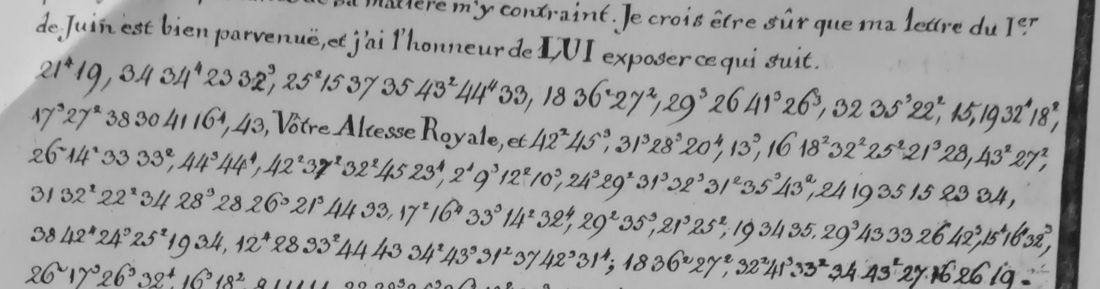 matière m'y contraint. Je crois être sûr que ma lettre du 1er
de Juin est bien parvenuë, et j'ai l'honneur de LUI exposer ce qui suit.
21⁴19, 34 34⁴ 23 32³, 25²15 37 35 43²44⁴33, 18 36²27², 29³ 26 41³ 26³, 32 35³22², 15, 19 32⁴ 18²,
17³27² 38 30 41 16⁴, 43, Vôtre Altesse Royale, et 42²45³, 31³28³20⁴, 13³, 16 18²32²25²21³28, 43²27²,
26²14² 33 33², 44³44⁴, 42²37²32²45 23⁴, 2⁴9³12²10³, 24³29²31³32³31²35³43², 24 19 35 15 23 34,
31 32²22²34 28³28 26³21³44 33, 17²16⁴33³14²32⁴, 29²35³, 21³25², 19 34 35, 29³43 33 26 42³, 15⁴16²32³,
38 42⁴24³25²19 34, 12⁴28 33²44 43 34²43³31²37 42³31⁴; 18 36²27², 32²41³33²34 43²27 16 26 19.
26²17³26³32⁴, 16³18²